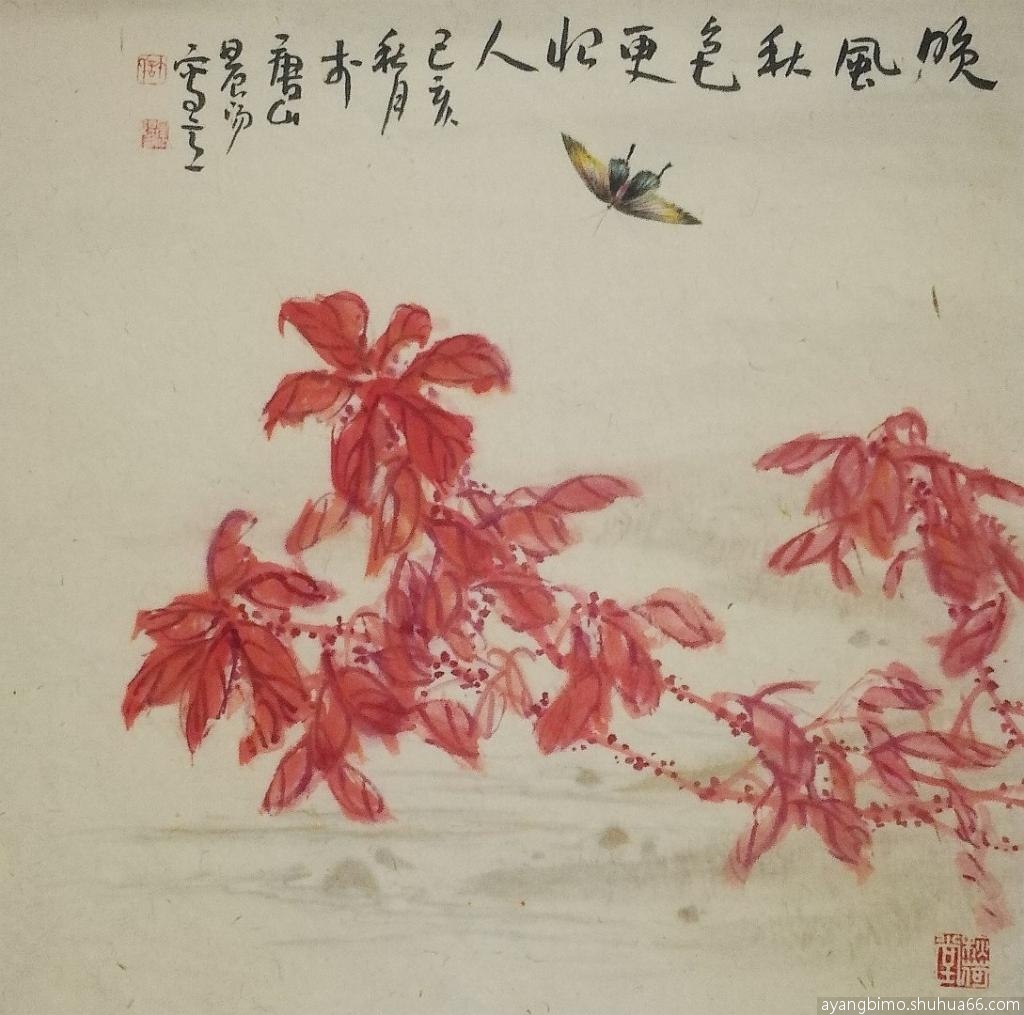 晚風秋色更怡人
己亥
秋月
於
唐山
晨
秋荷堂
ayangbimo.shuhua66.com